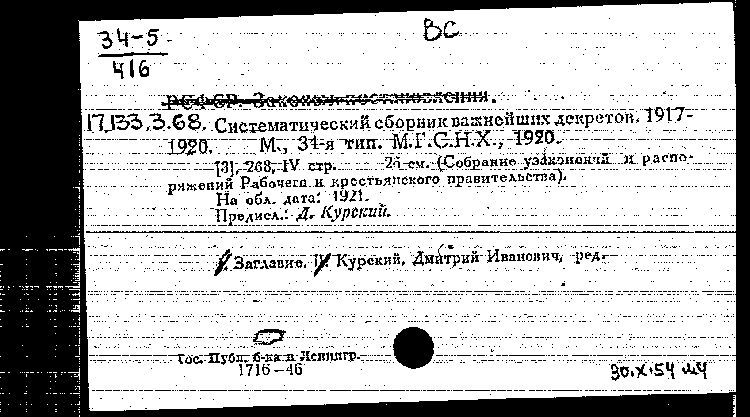 34-5
416
ВС
РСФСР. Законы и постановления.
17,133.3.68. Систематический сборник важнейших декретов. 1917-
1920. М., 34-я тип. М.Г.С.Н.Х., 1920.
[3], 268, IV стр. 26 см. (Собрание узаконений и распо-
ряжений Рабочего и крестьянского правительства).
На обл. дата: 1921.
Предисл.: Д. Курский.
I. Заглавие. II. Курский, Дмитрий Иванович, ред.
Гос. Публ. б-ка в Ленингр.
1716—46
30.X.54